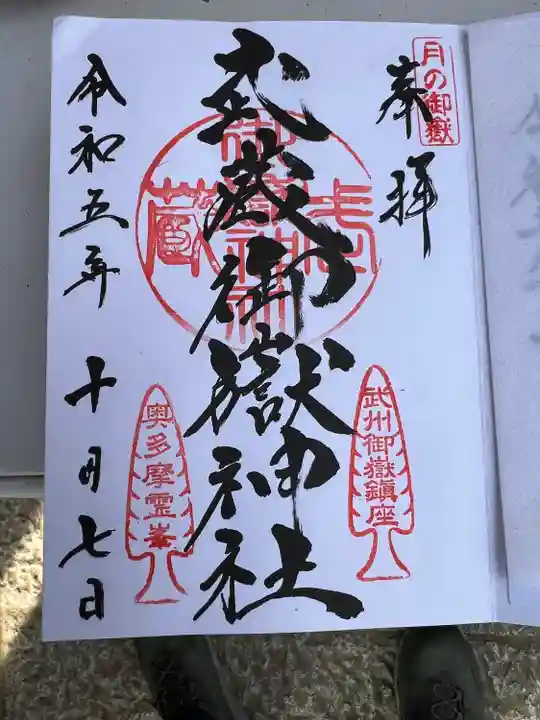 月の御嶽
奉拝
武州御嶽鎮座
武蔵御嶽神社
武蔵御嶽神社
奥多摩霊峯
令和五年十月七日